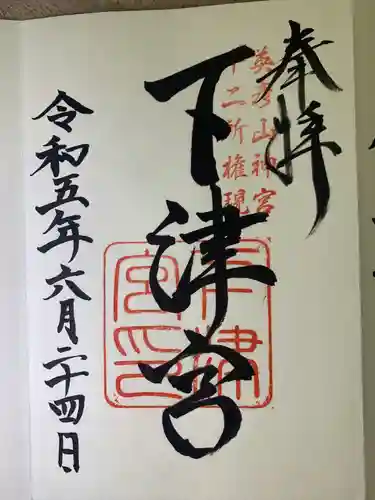 奉拝
英彦山神宮
十二所権現
下津宮
下津
宮印
令和五年六月二十四日